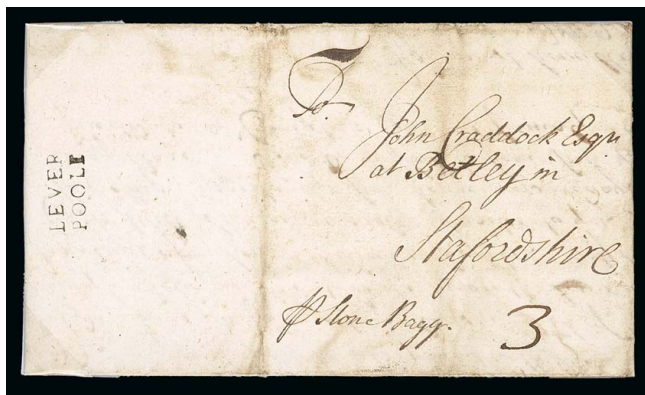 LEVER
POOLE
To
John Craddock Esqr
at Betley in
Stafordshire
℔ Stone Bagg.
3